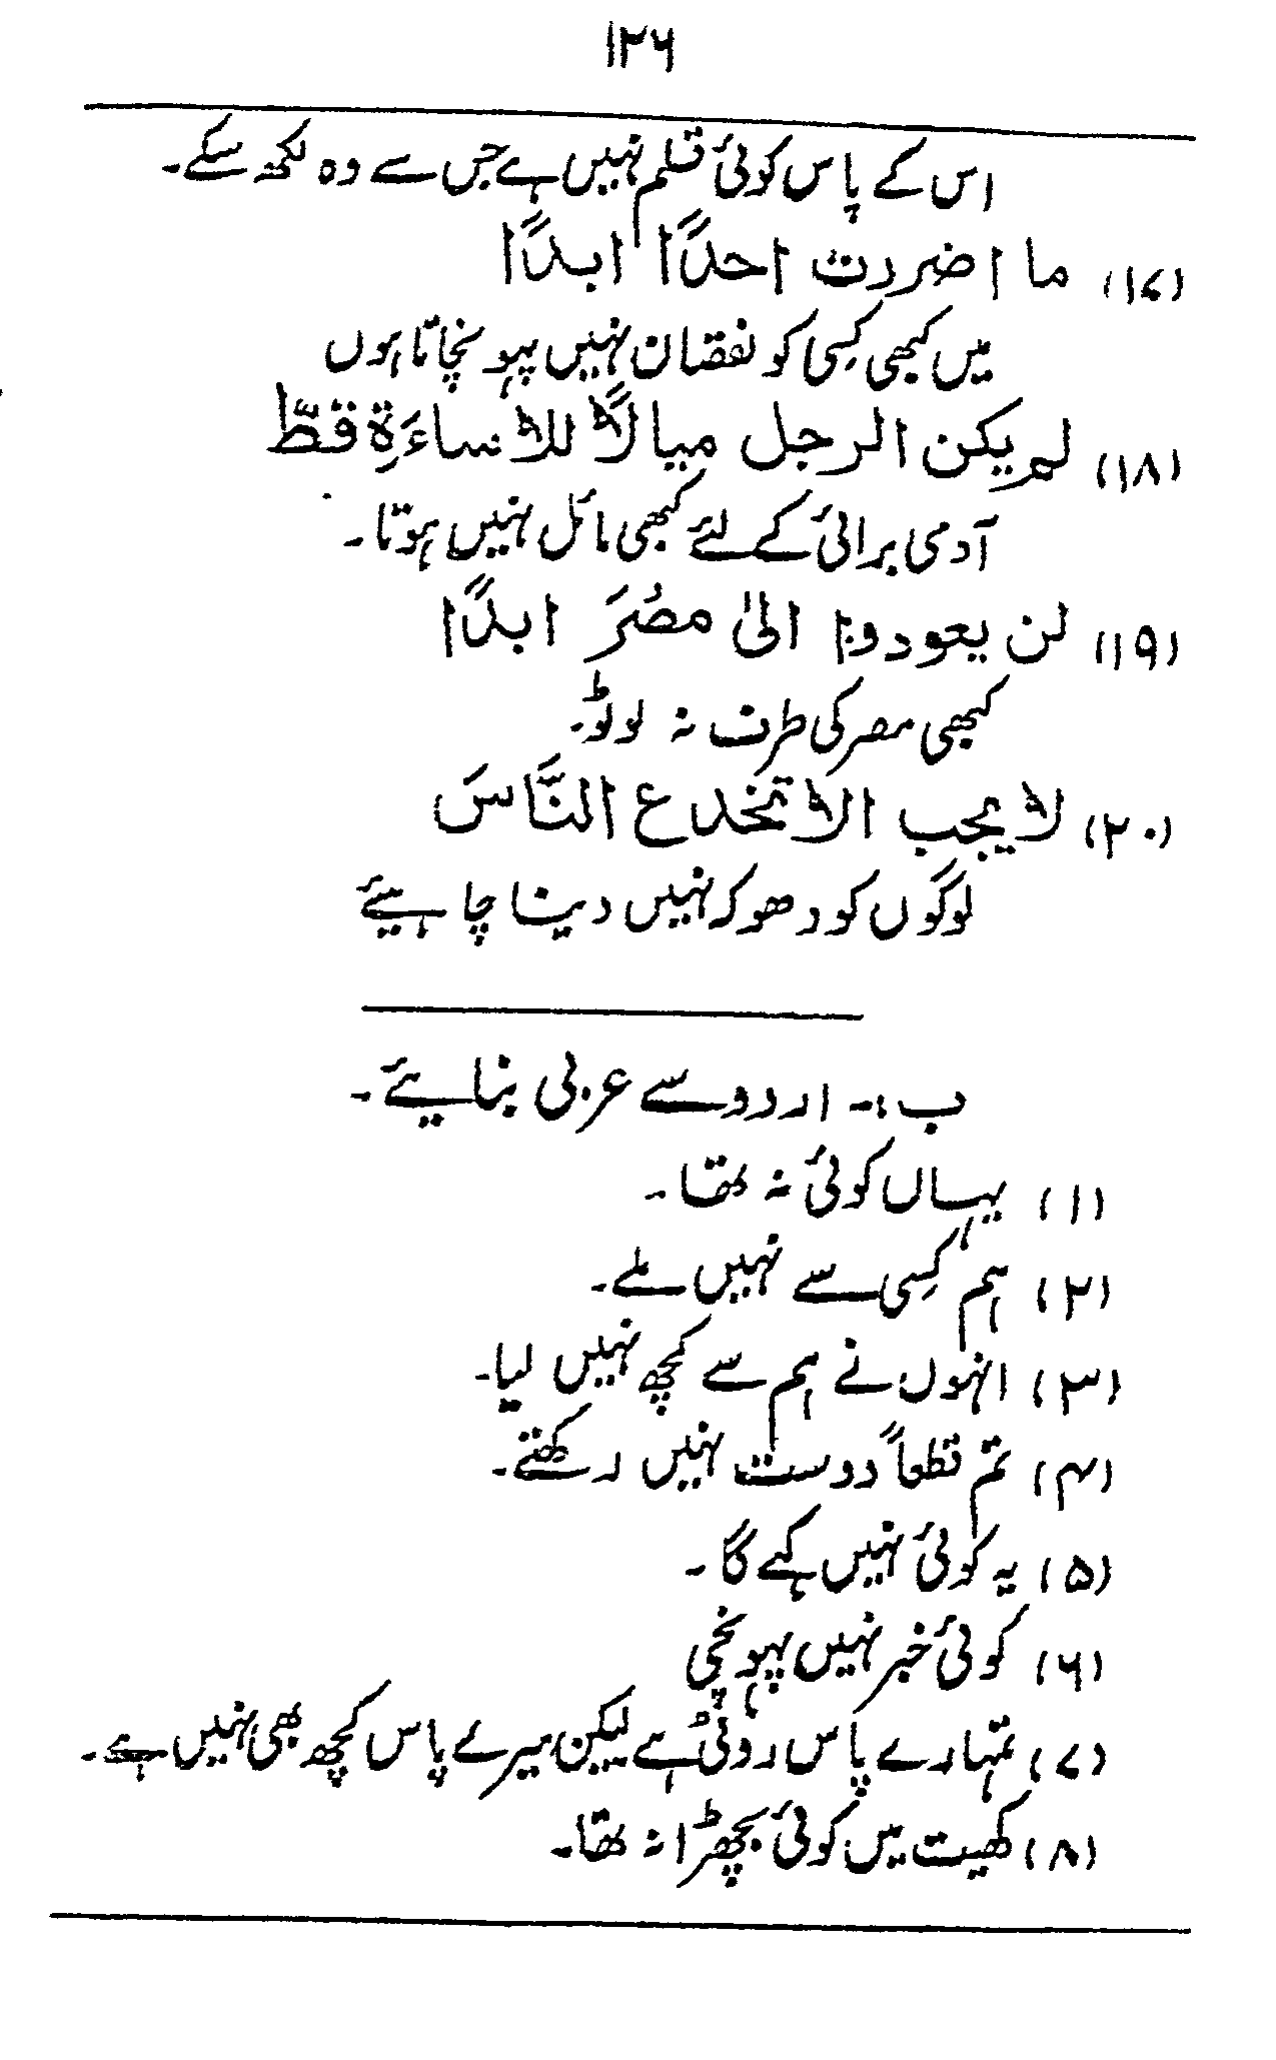 ۱۲۶
اس کے پاس کوئی قلم نہیں ہے جس سے وہ لکھ سکے۔
(۱۷) ما اضررت احدًا ابدًا
میں کبھی کسِی کو نقصان نہیں پہونچاتا ہوں
(۱۸) لم یکن الرجل میالاً للاساءَۃِ قطّ
آدمی برائی کے لئے کبھی مائل نہیں ہوتا۔
(۱۹) لن یعودوا الیٰ مصُرَ ابدًا
کبھی مصر کی طرف نہ لوٹو۔
(۲۰) لا یجب الا تخدع النَّاسَ
لوگوں کو دھوکہ نہیں دینا چاہیئے
ب :- اردو سے عربی بنایئے۔
(۱) یہاں کوئی نہ تھا۔
(۲) ہم کسِی سے نہیں ملے۔
(۳) انہوں نے ہم سے کچھ نہیں لیا۔
(۴) تم قطعاً دوست نہیں رکھتے۔
(۵) یہ کوئی نہیں کہے گا۔
(۶) کوئی خبر نہیں پہونچی
(۷) تمہارے پاس روٹی ہے لیکن میرے پاس کچھ بھی نہیں ہے۔
(۸) کھیت میں کوئی بچھڑا نہ تھا۔